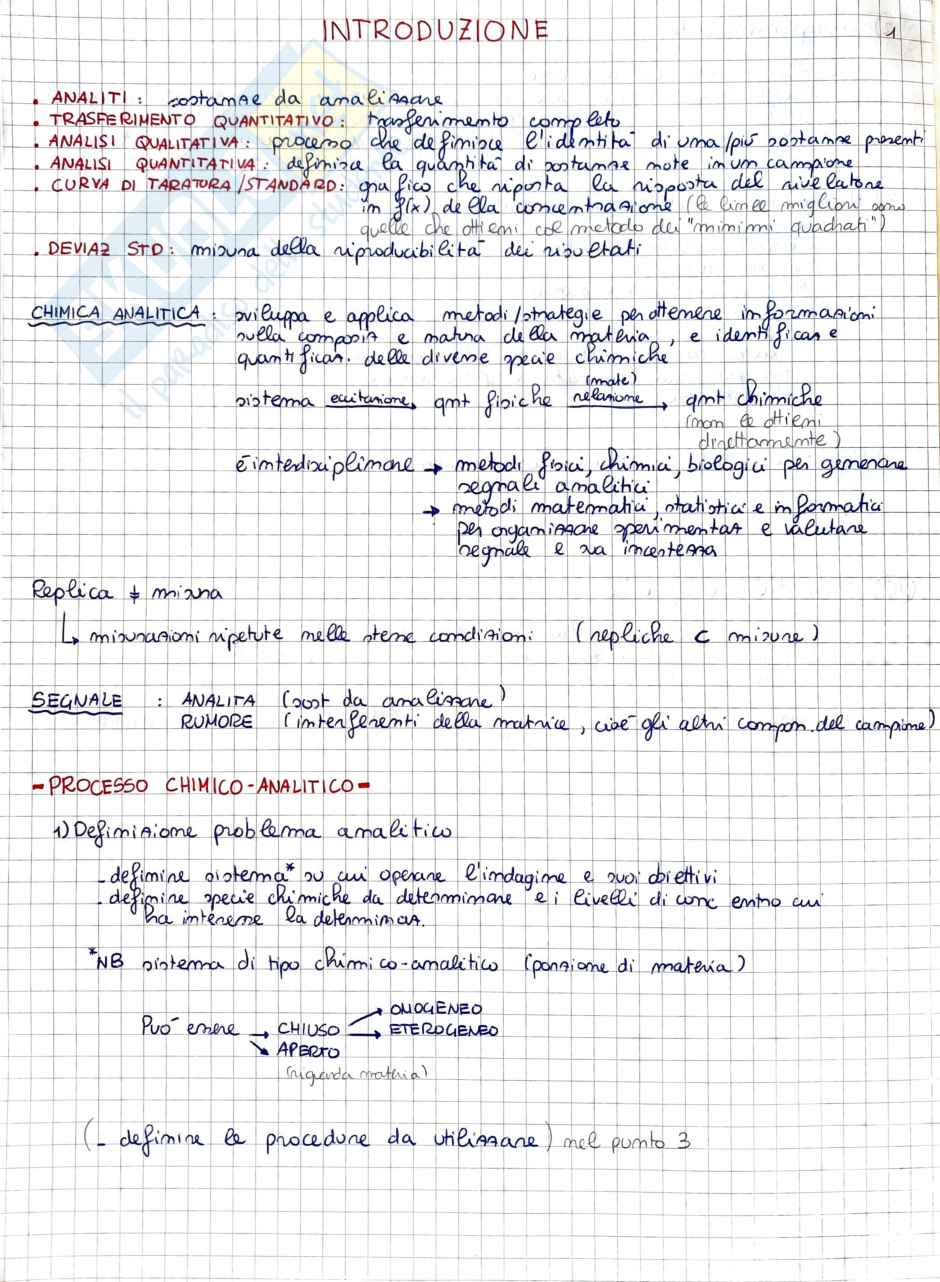 INTRODUZIONE
1
• ANALITI: sostanze da analizzare
• TRASFERIMENTO QUANTITATIVO: trasferimento completo
• ANALISI QUALITATIVA: processo che definisce l'identità di una/più sostanze presenti
• ANALISI QUANTITATIVA: definisce la quantità di sostanze note in un campione
• CURVA DI TARATURA/STANDARD: grafico che riporta la risposta del rivelatore
in f(x) della concentrazione (le linee migliori sono
quelle che ottieni col metodo dei "minimi quadrati")
• DEVIAZ STD: misura della riproducibilità dei risultati
CHIMICA ANALITICA: sviluppa e applica metodi/strategie per ottenere informazioni
sulla composiz e natura della materia, e identificaz e
quantificaz. delle diverse specie chimiche
(mate)
sistema eccitazione→ qnt fisiche relazione→ qnt chimiche
(non le ottieni
direttamente)
è interdisciplinare → metodi fisici, chimici, biologici per generare
segnali analitici
→ metodi matematici, statistici e informatici
per organizzare sperimentaz e valutare
segnale e sua incertezza
Replica ≠ misura
↳ misurazioni ripetute nelle stesse condizioni (repliche ⊂ misure)
SEGNALE : ANALITA (sost da analizzare)
RUMORE (interferenti della matrice, cioè gli altri compon. del campione)
- PROCESSO CHIMICO-ANALITICO -
1) Definizione problema analitico
- definire sistema* su cui operare l'indagine e suoi obiettivi
- definire specie chimiche da determinare e i livelli di conc entro cui
ha interesse la determinaz.
*NB sistema di tipo chimico-analitico (porzione di materia)
→ OMOGENEO
Può essere → CHIUSO → ETEROGENEO
↘ APERTO
(riguarda materia)
(- definire le procedure da utilizzare) nel punto 3